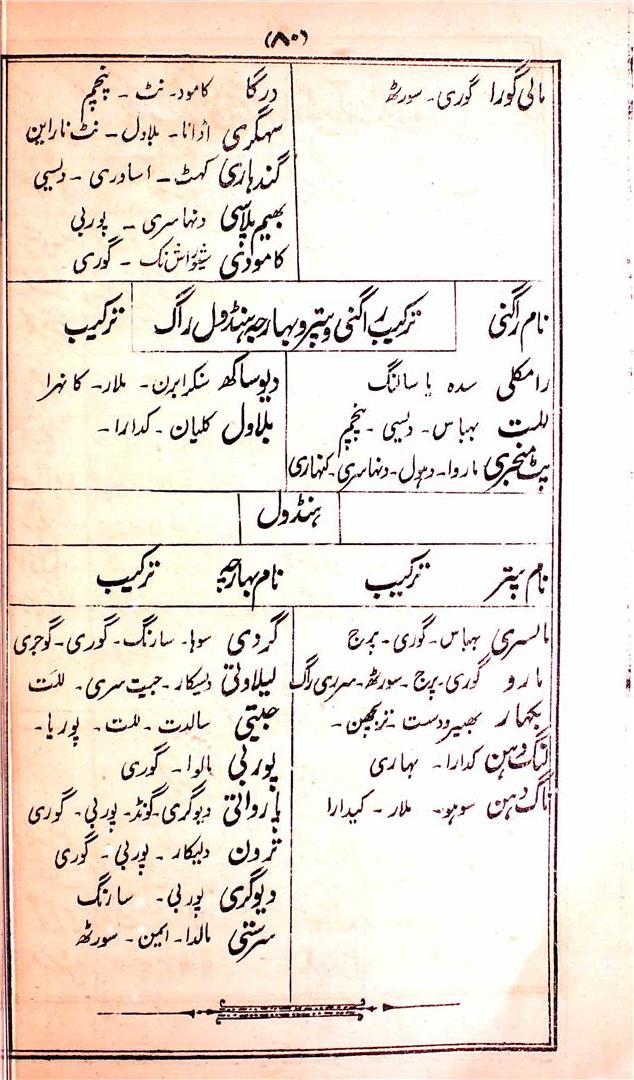 (۸۰)
مالی گورا گوری۔ سورٹھ
درگا کامود۔ نٹ ۔ پنچم
سہگری اڈانا۔ بلاول ۔ نٹ ناراین
گندہاری کہٹ ۔ اساوری ۔ دیسی
بھیم پلاسی دنہاسری ۔ پوربی
کامودنی ۔ گوری
نام راگنی
ترکیب راگنی و پتر و بہارجہ ہنڈول راگ
ترکیب
رامکلی سدہ یا سارنگ
للت بہباس۔ دیسی ۔ پنچم
پٹ منجری ماروا۔ دہول۔ دنہاسری۔ کنہاری
دیوساکھ سنکرابرن۔ ملار۔ کانہرا
بلاول کلیان ۔ کدارا۔
ہنڈول
نام پتر ترکیب نام بہارجہ ترکیب
مالسری بہباس۔ گوری۔ برج
مارو گوری۔ پرج ۔ سورٹھ۔ سرری راگ
بکہار بھیر ودست ۔
لنک دہن کدارا۔ بہاری
ناگ دہن سوہو۔ ملار ۔ کیدارا
گردی سوہا۔ سارنگ۔ گوری۔ گوجری
لیلاوتی دیسکار۔ جیت سری۔ للت
جیتی سالدت ۔ للت ۔ پوریا۔
پوربی مالوا۔ گوری
پاروانی دیوگری۔ گونڈ۔ پوربی۔ گوری
ترون دلیکار ۔ پوربی ۔ گوری
دیوگری پوربی۔ سارنگ
سرستی مالدا۔ ایمن ۔ سورٹھ